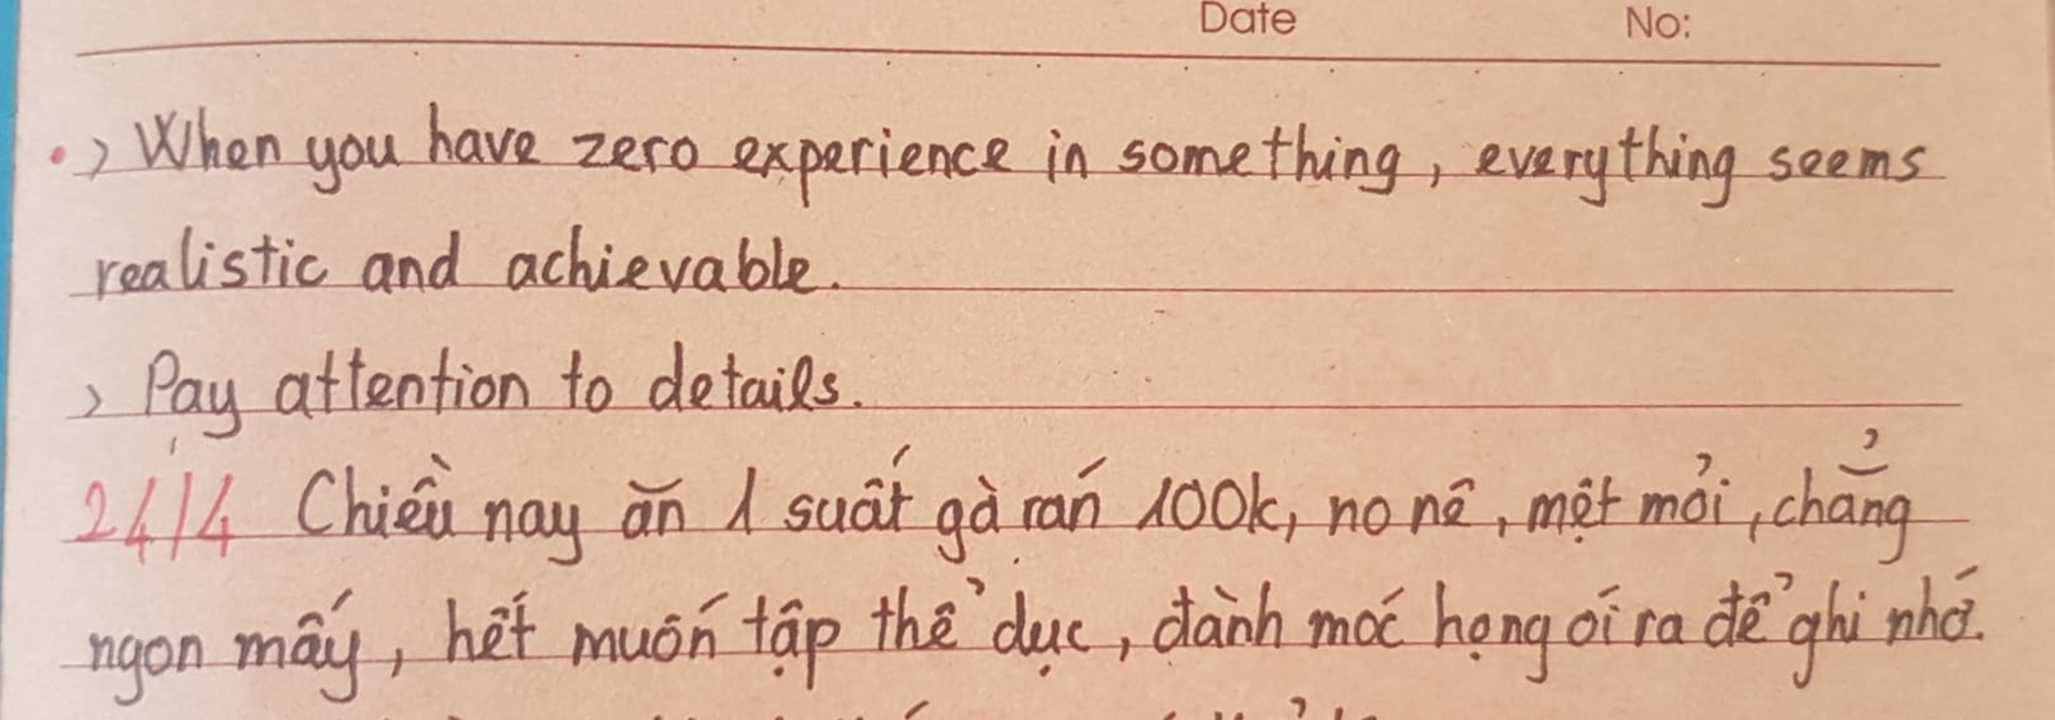 Date No:
> When you have zero experience in something, everything seems
realistic and achievable.
> Pay attention to details.
24/4 Chiều nay ăn 1 suất gà rán 100k, no nê, mệt mỏi, chẳng
ngon mấy, hết muốn tập thể dục, đành móc họng ói ra để ghi nhớ.